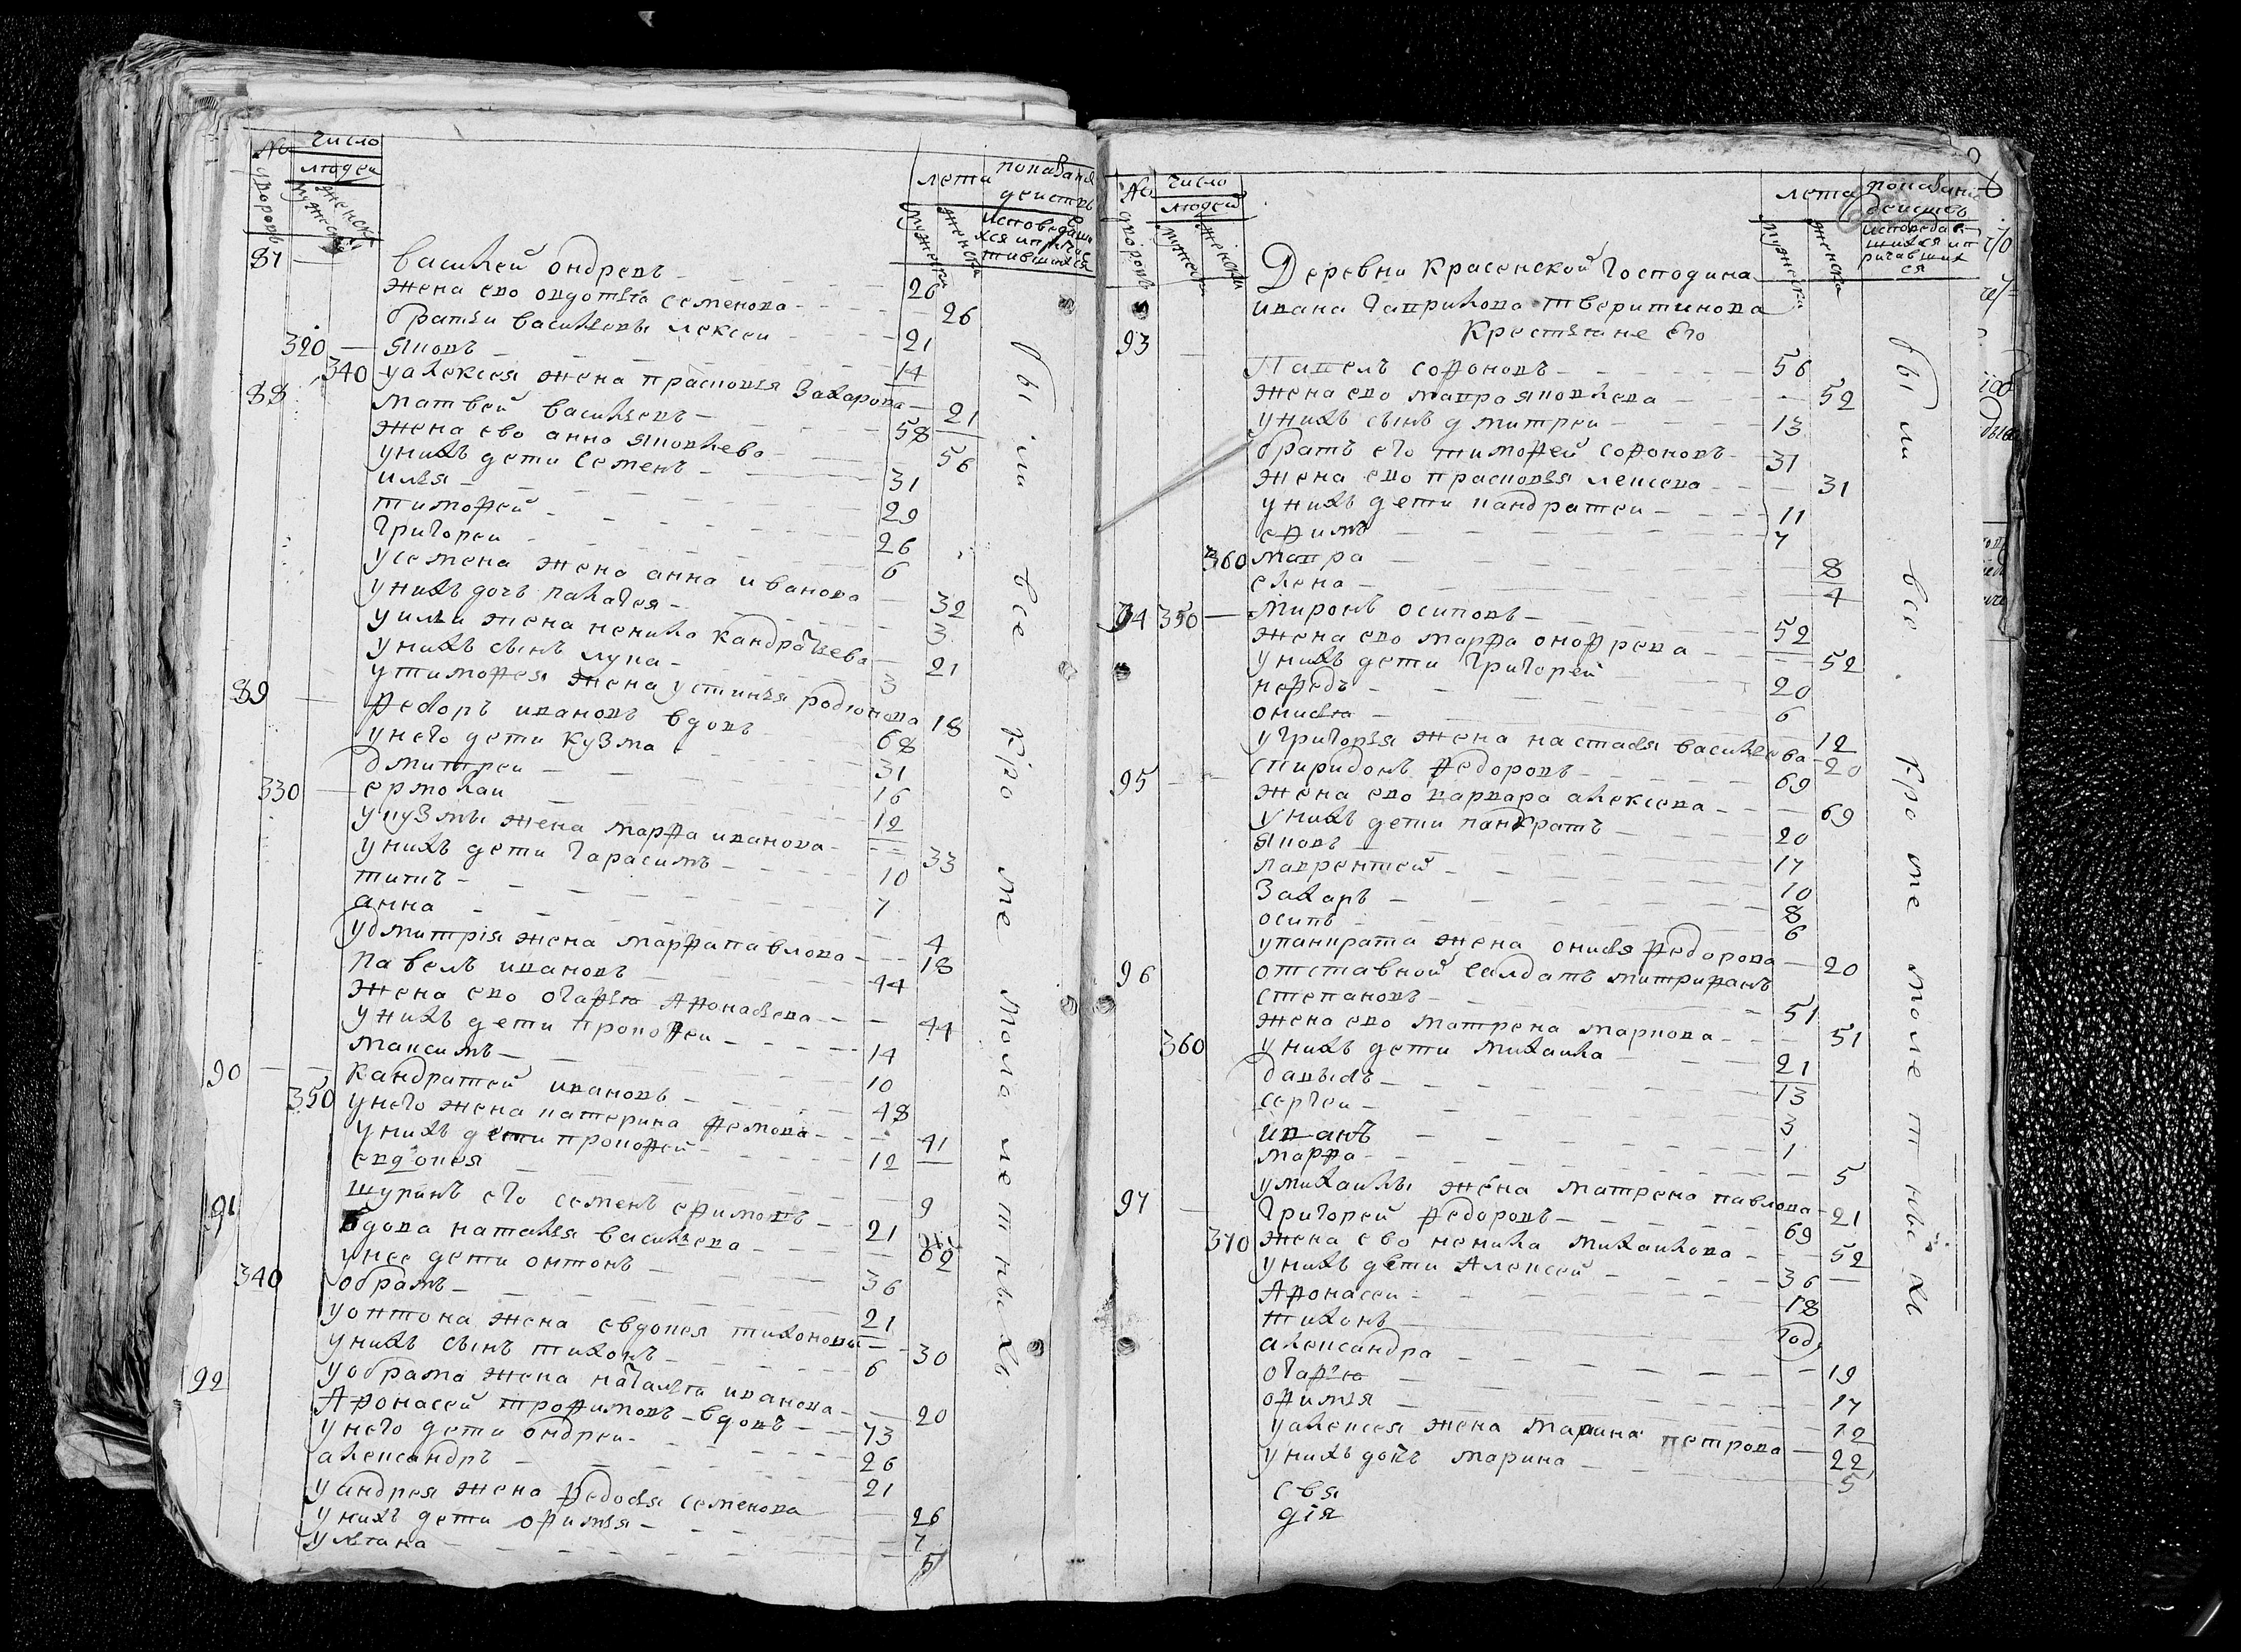 № дворовъ
число людей
мужеска
женска
лета
мужеска
женска
показание действъ
исповедавшихся и причастившихся
87 василей ондревъ 26
жена ево овдотья семенова 26
братьи васильевы лексеи 21
320 яковъ 14
340 у алексея жена прасковья захарова 21
88 матвей васильевъ 58
жена ево анна яковлева 56
у нихъ дети семенъ 31
илья 29
тимофей 26
григореи 6
у семена жена анна иванова 32
у нихъ дочь палагея 3
у ильи жена ненила кандратьева 21
у нихъ сынъ лупа 3
у тимофея жена устинья родионова 18
89 федоръ ивановъ вдовъ 68
у него дети кузма 31
дмитреи 16
330 ермолаи 12
у кузмы жена марфа иванова 33
у нихъ дети гарасимъ 10
титъ 7
анна 4
у дмитрія жена марфа павлова 18
павелъ ивановъ 44
жена ево огафья афонасьева 44
у нихъ дети прокофеи 14
максимъ 10
90 кандратей ивановъ 48
350 у него жена катерина фемова 41
у нихъ дети прокофей 12
евдокея 9
шуринъ его семенъ ефимовъ 21
91 вдова наталья васильева 62
у нее дети онтонъ 36
340 обрамъ 21
у онтона жена евдокея тихонова 30
у нихъ сынъ тихонъ 6
у обрама жена наталья иванова 20
92 Афонасей трофимовъ вдовъ 73
у него дети ондреи 26
александръ 21
у андрея жена федосья семенова 26
у нихъ дети офимья 7
ульяна 5
были все кроме малолетныхъ
№ дворовъ
число людей
мужеска
женска
лета
мужеска
женска
показание действъ
исповедавшихся и причавшихся
Деревни Красенской Господина
ивана гаврилова тверитинова
Крестьяне его
93 Павелъ софоновъ 56
жена ево мавра яковлева 52
у нихъ сынъ дмитреи 13
братъ его тимофей софоновъ 31
жена ево прасковья лексева 31
у нихъ дети кандратеи 11
ефимъ 7
360 мавра 8
елена 4
94 350 миронъ осиповъ 52
жена ево марфа онофрева 52
у нихъ дети григорей 20
нефедъ 6
онисья 12
у григорья жена настасья васильева 20
95 спиридонъ федоровъ 69
жена ево варвара алексева 69
у нихъ дети панкратъ 20
яковъ 17
лаврентей 10
захаръ 8
осипъ 6
у панкрата жена онисья федорова 20
96 отставной салдатъ митрифанъ
степановъ 51
жена ево матрена маркова 51
360 у нихъ дети михаила 21
давыдъ 13
сергеи 3
иванъ 1
марфа 5
у михаилы жена матрена павлова 21
97 григорей федоровъ 69
370 жена ево ненила михаилова 52
у нихъ дети Алексей 36
Афонасеи 18
тихонъ годъ
александра 19
огафья 17
офимья 12
у алексея жена марина петрова 22
у нихъ дочь марина 5
свя
дія
были все кроме малолетныхъ